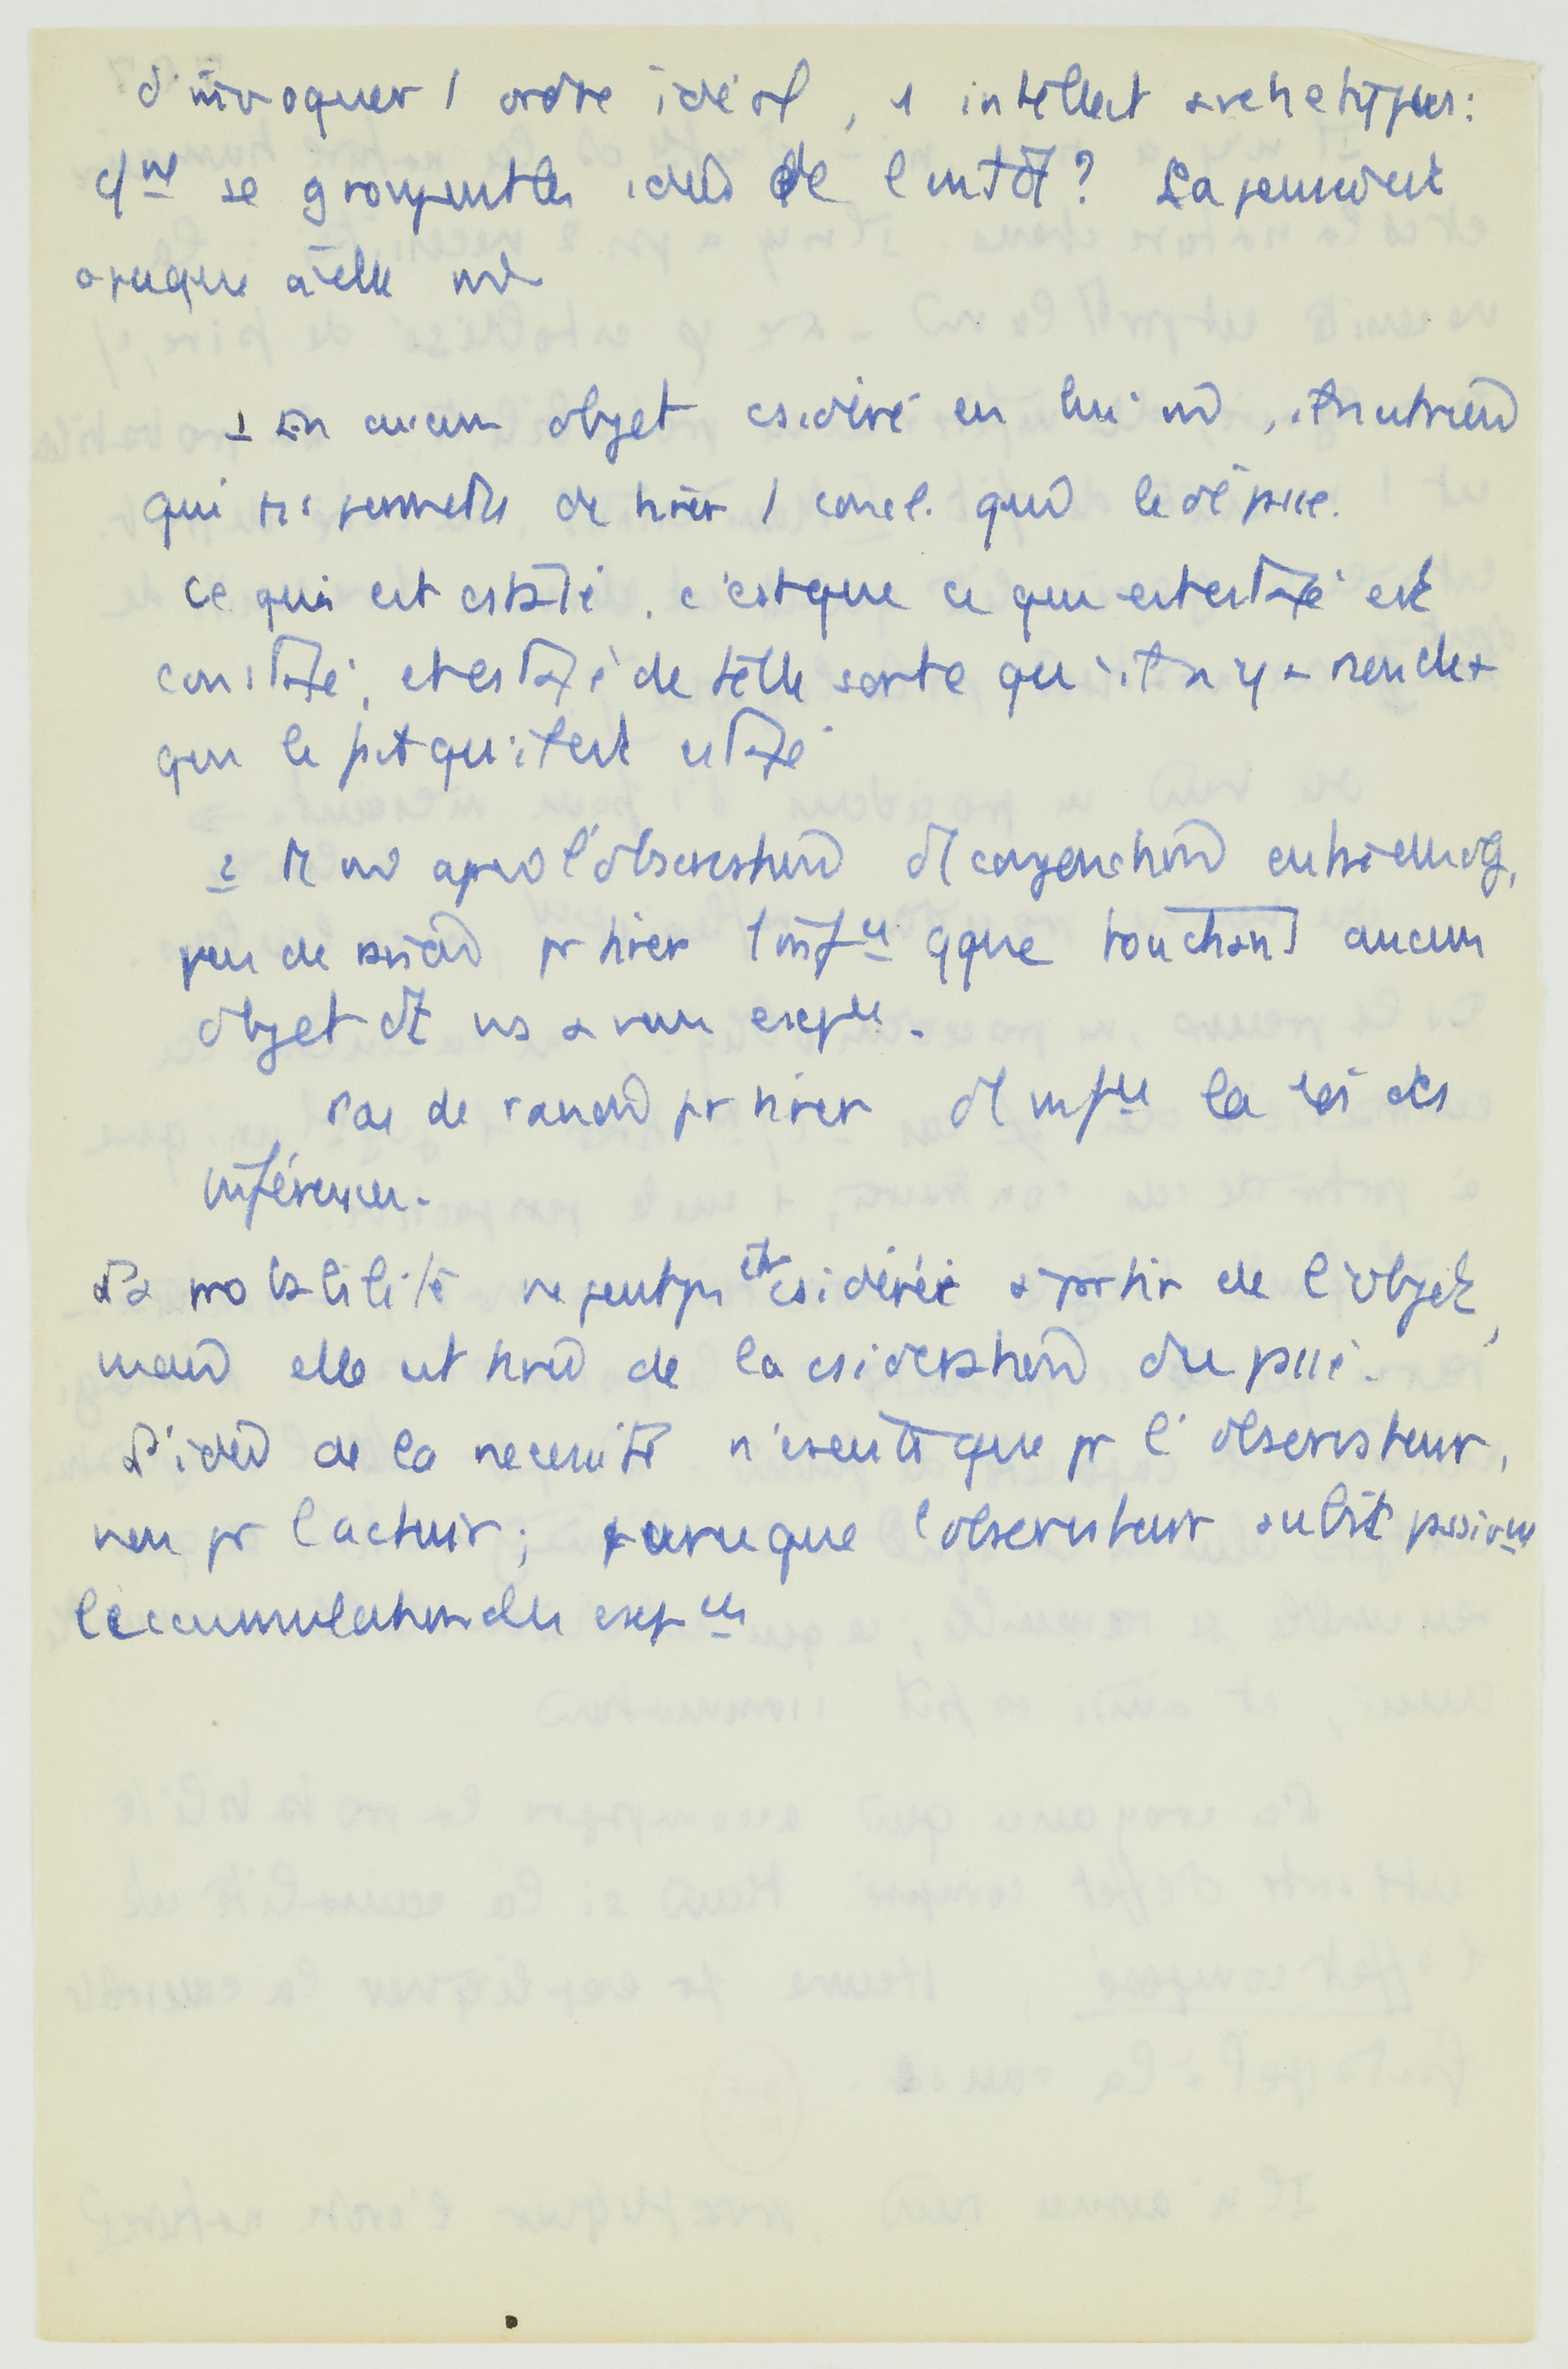 d'invoquer 1 ordre idéal, 1 intellect archetype:
se groupent les idées de
à elle
1 En aucun objet csidéré en lui m̂, il n'est rien
qui ns permette de tirer 1 concl. qui le dépasse.
Ce qui est cstaté, c'est que ce qui est cstaté est
cstaté, et cstaté de telle sorte qu'il n'y a rien de +
que le fait qu'il est cstaté
2 M m̂ après l'observation
de raison pr tirer 1 inf ce qque touchant aucun
objet dt ns avons exp ce.
Pas de raison pr tirer d' inf ce la loi des
inférences.
La probabilité ne peut pas être csidérée à partir de l'objet,
mais elle est tirée de la csidération du passé.
L'idée de la nécessité n'existe que pr l'observateur,
non pr l'acteur; parce que l'observateur subit passiv nt
l'accumulation des exp ces